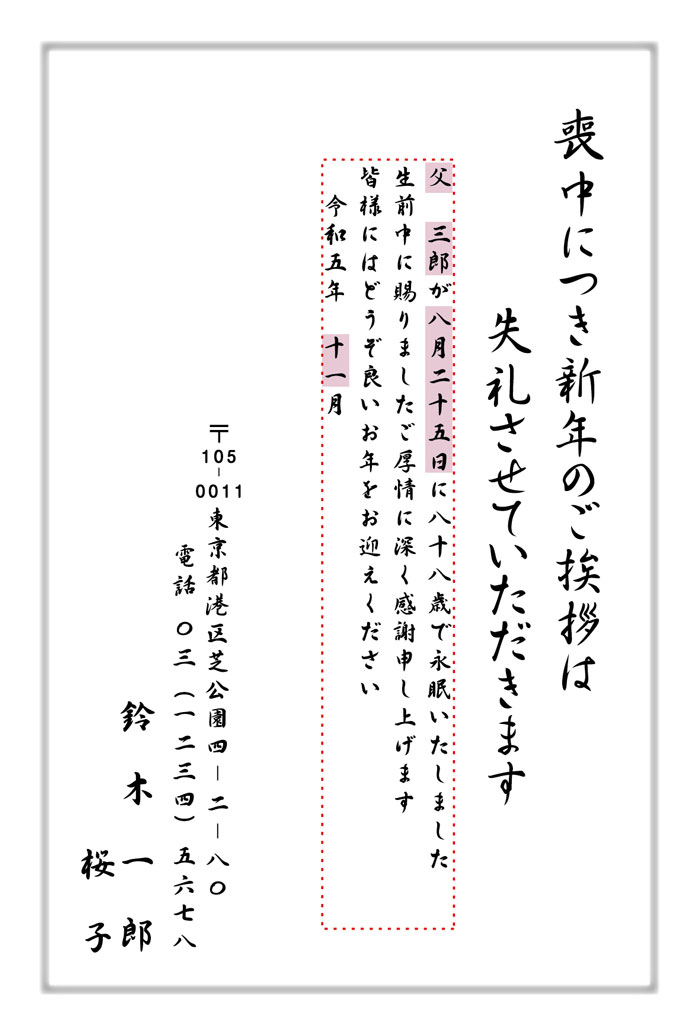 喪中につき新年のご挨拶は
失礼させていただきます
父　三郎が八月二十五日に八十八歳で永眠いたしました
生前中に賜りましたご厚情に深く感謝申し上げます
皆様にはどうぞ良いお年をお迎えください
令和五年　十一月
〒105-0011 東京都港区芝公園四－二－八〇
電話　〇三（一二三四）五六七八
鈴木一郎
桜子